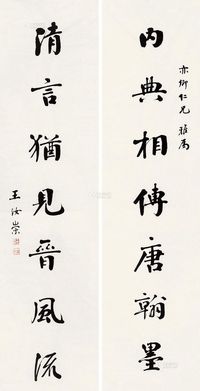 亦卿仁兄雅属
内典相傳唐翰墨
清言猶見晉風流
王汝崇